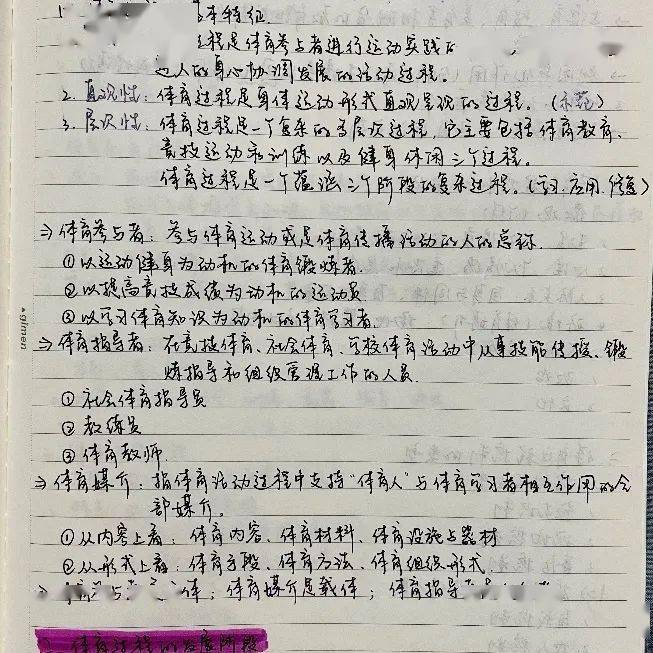 本特征
过程是体育参与者进行运动实践
人的身心协调发展的活动过程。
2. 直观性：体育过程是身体运动形式直观呈现的过程。（示范）
3. 层次性：体育过程是一个复杂的多层次过程，它主要包括体育教育、
竞技运动和训练以及健身休闲三个过程。
体育过程是一个蕴涵三个阶段的复杂过程。（学习.应用.
⇒ 体育参与者：参与体育运动或是体育传播活动的人的总称.
① 以运动健身为动机的体育锻炼者.
② 以提高竞技成绩为动机的运动员
③ 以学习体育知识为动机的体育学习者.
⇒ 体育指导者：在竞技体育、社会体育、学校体育活动中从事技能传授、锻
炼指导和组织管理工作的人员.
① 社会体育指导员
② 教练员
③ 体育教师
⇒ 体育媒介：指体育活动过程中支持“体育人”与体育学习者相互作用的全
部媒介。
① 从内容上看：体育内容、体育材料、体育设施与器材
② 从形式上看：体育手段、体育方法、体育组织形式.
体；体育媒介是载体；体育指导
体育过程的发展阶段
aglmen